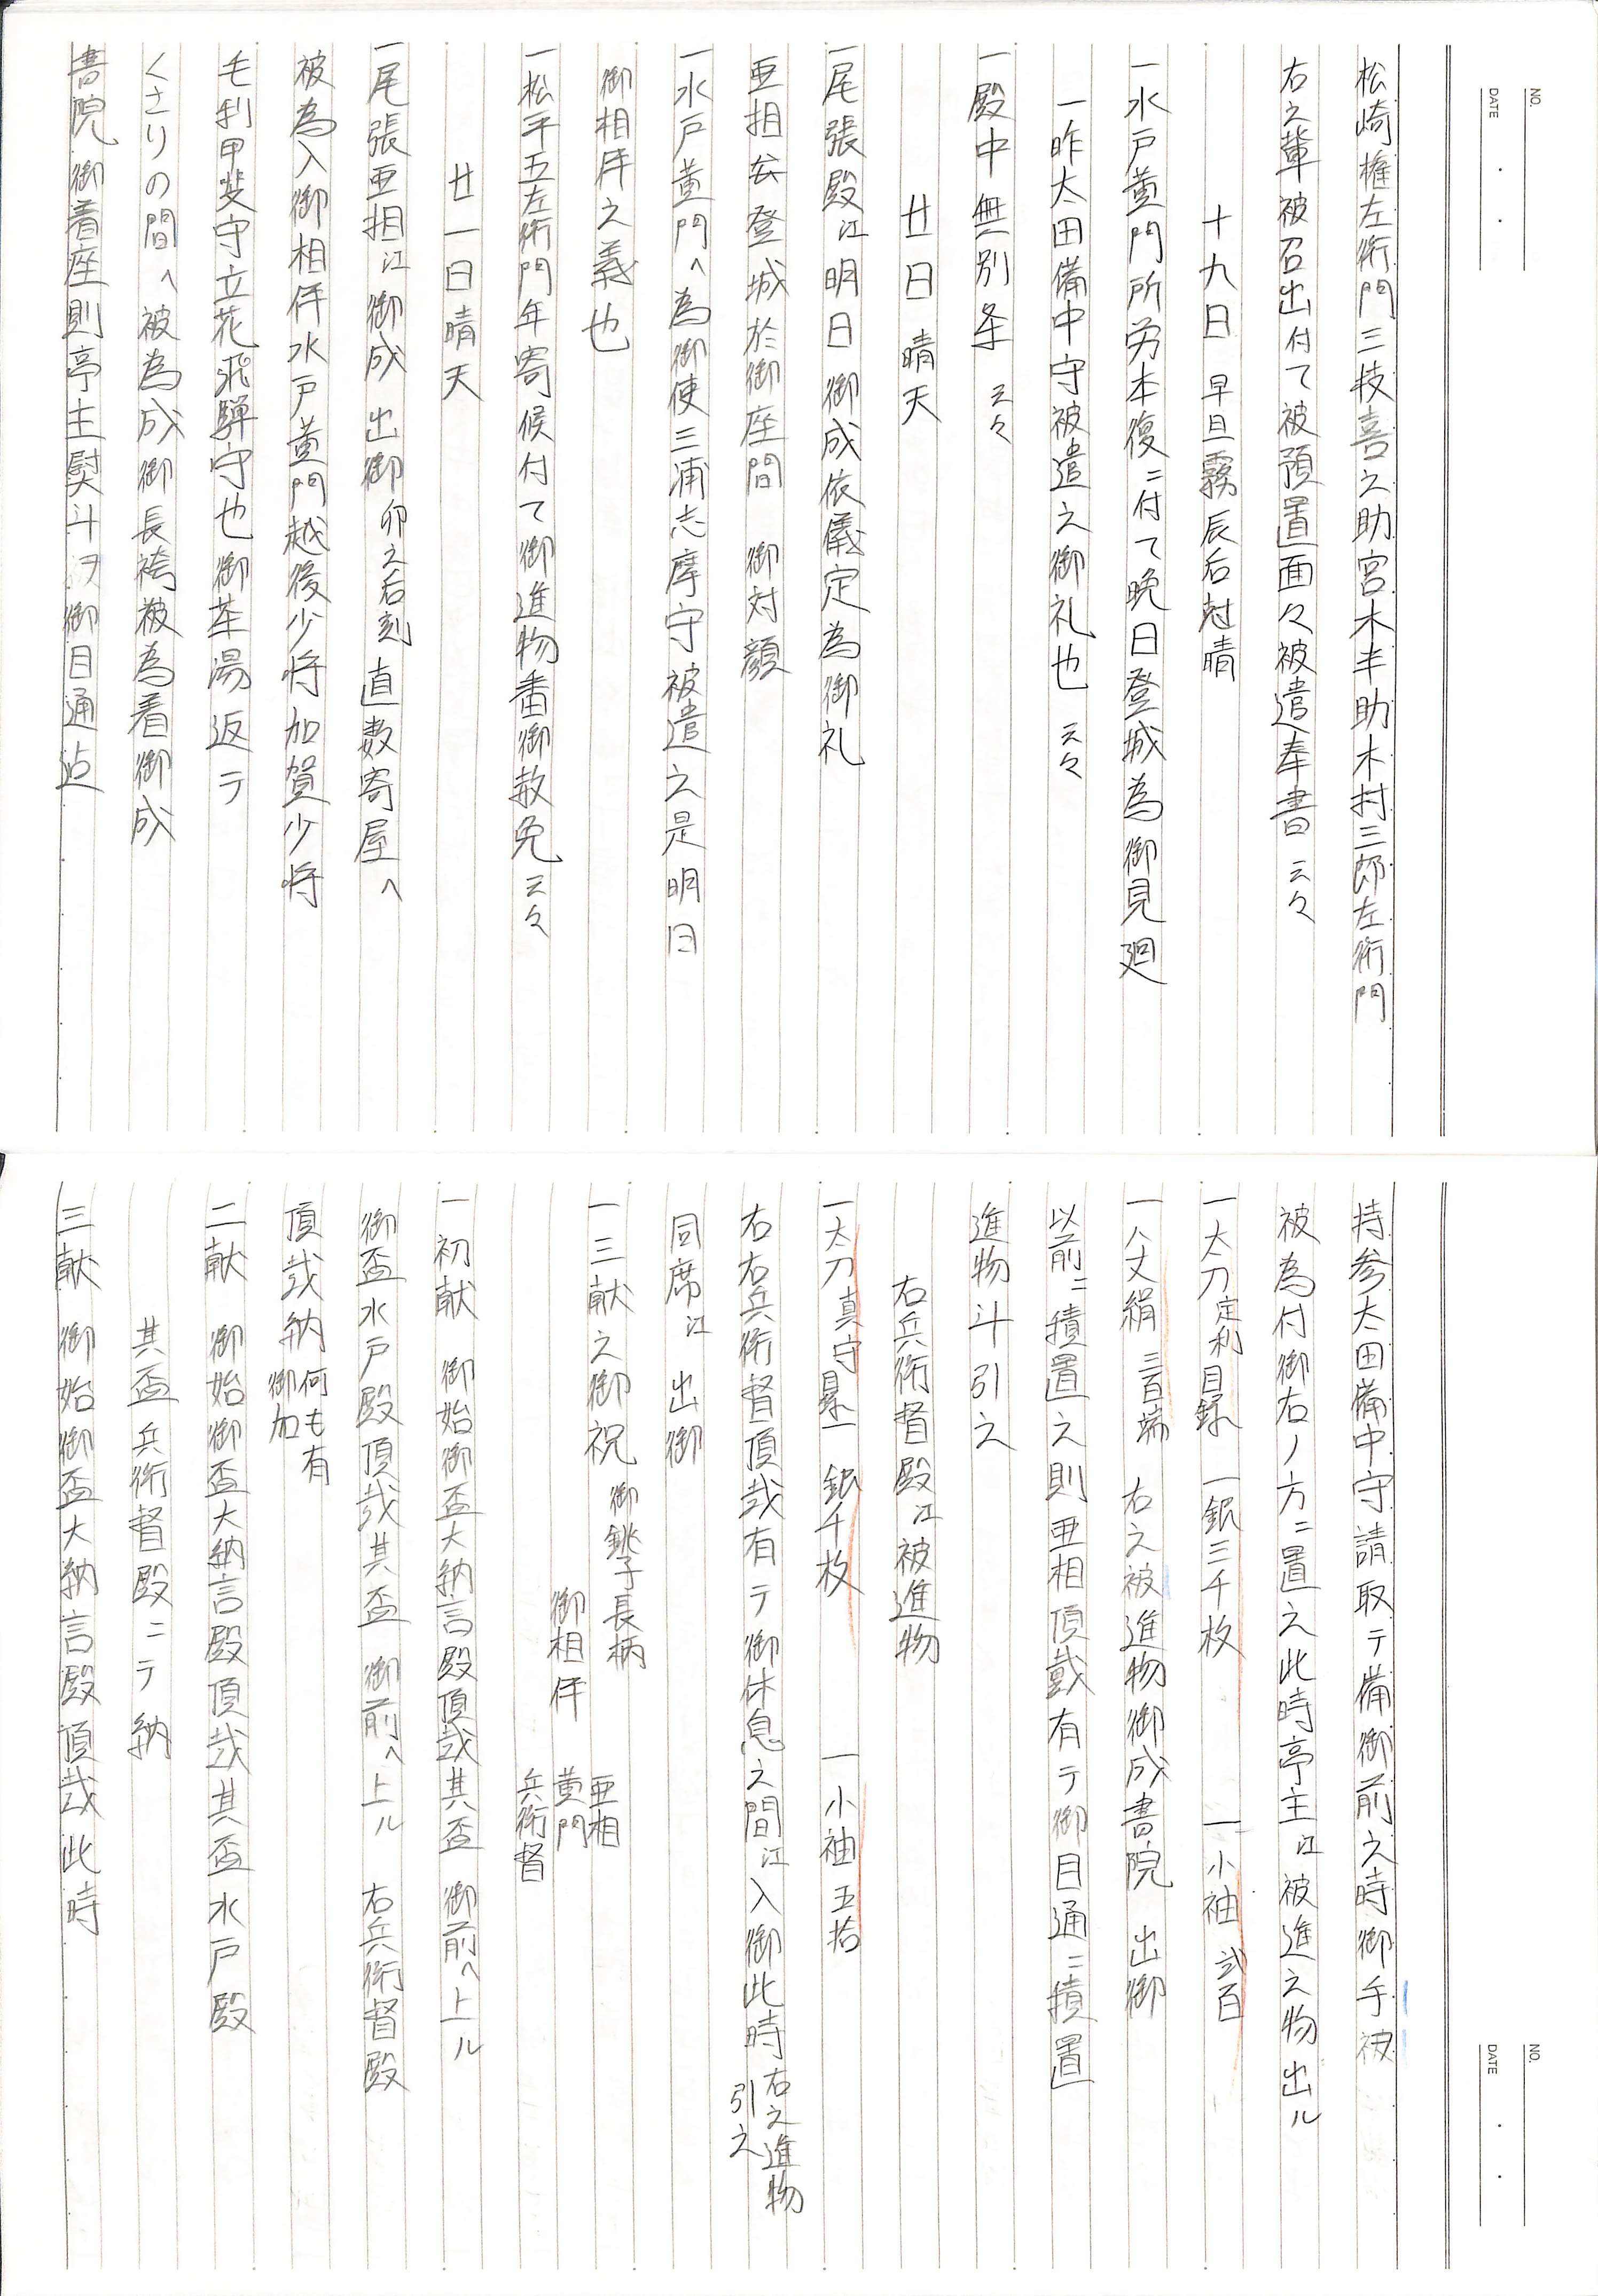 NO.
DATE
松崎権左衛門三枝喜之助宮木半助木村三郎左衛門
右之輩被召出付て被預置面々被遣奉書 云々
十九日 早旦霧辰后尅晴
一水戸黄門所労本復ニ付て晩日登城為御見廻
一昨太田備中守被遣之御礼也 云々
一殿中無別条 云々
廿日 晴天
一尾張殿江明日御成依儀定為御礼
亜相去登城於御座間 御対顔
一水戸黄門へ為御使三浦志摩守被遣之是明日
御相伴之義也
一松平五左衛門年寄候付て御進物番御赦免 云々
廿一日晴天
一尾張亜相江御成 出御 卯之后刻 直数寄屋へ
被為入御相伴水戸黄門越後少将加賀少将
毛利甲斐守立花飛騨守也御茶湯返テ
くさりの間へ被為成御長袴被為着御成
書院御着座則亭主熨斗ヲ御目通迠
NO.
DATE
持参太田備中守請取テ備御前之時御手被
被為付御右ノ方ニ置之此時亭主江被進之物出ル
一太刀 定利目録 一銀三千枚 一小袖 弐百
一八丈絹 三百端 右之被進物御成書院 出御
以前ニ積置之則亜相頂戴有テ御目通ニ積置
進物斗引之
右兵衛督殿江被進物
一太刀 真守目録 一銀千枚 一小袖 五拾
右右兵衛督頂戴有テ御休息之間江入御此時 右之進物引之
同席江 出御
一三献之御祝 御銚子長柄 御相伴 亜相 黄門 兵衛督
一初献 御始御盃大納言殿頂戴其盃 御前へ上ル
御盃水戸殿頂戴其盃 御前へ上ル 右兵衛督殿
頂戴納 何も有御加
二献 御始御盃大納言殿頂戴其盃水戸殿
其盃兵衛督殿ニテ納
三献 御始御盃大納言殿頂戴此時